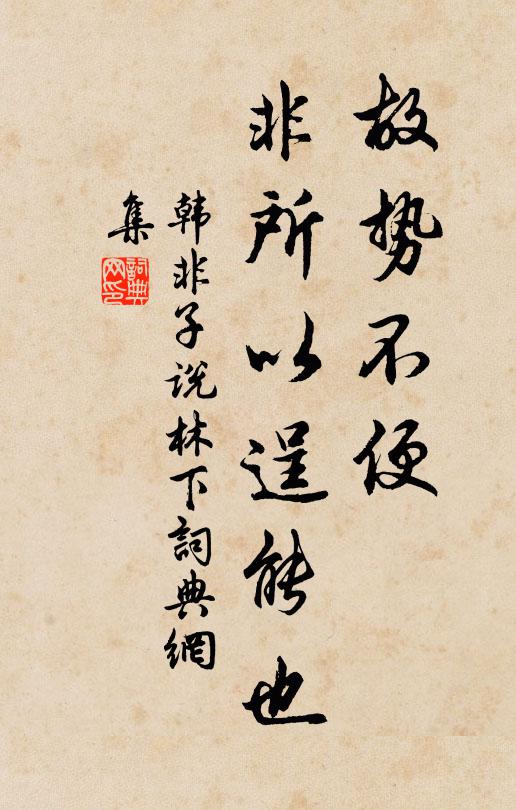 故势不便
非所以逞能也
韩非子说林下詞典網
集
詞典
网印